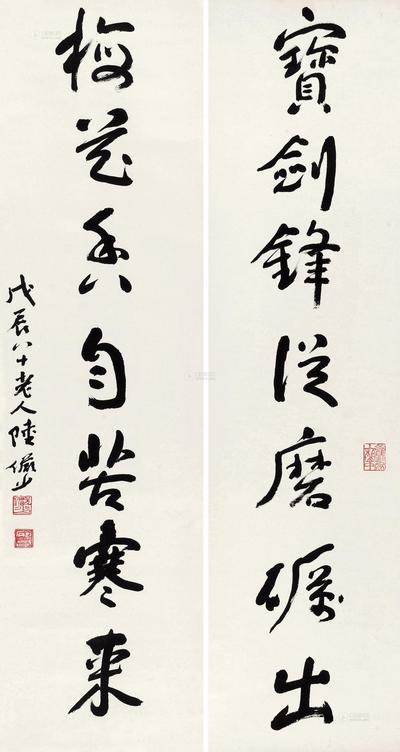 寶劍鋒從磨礪出
梅花香自苦寒來
戊辰八十老人陸儼少